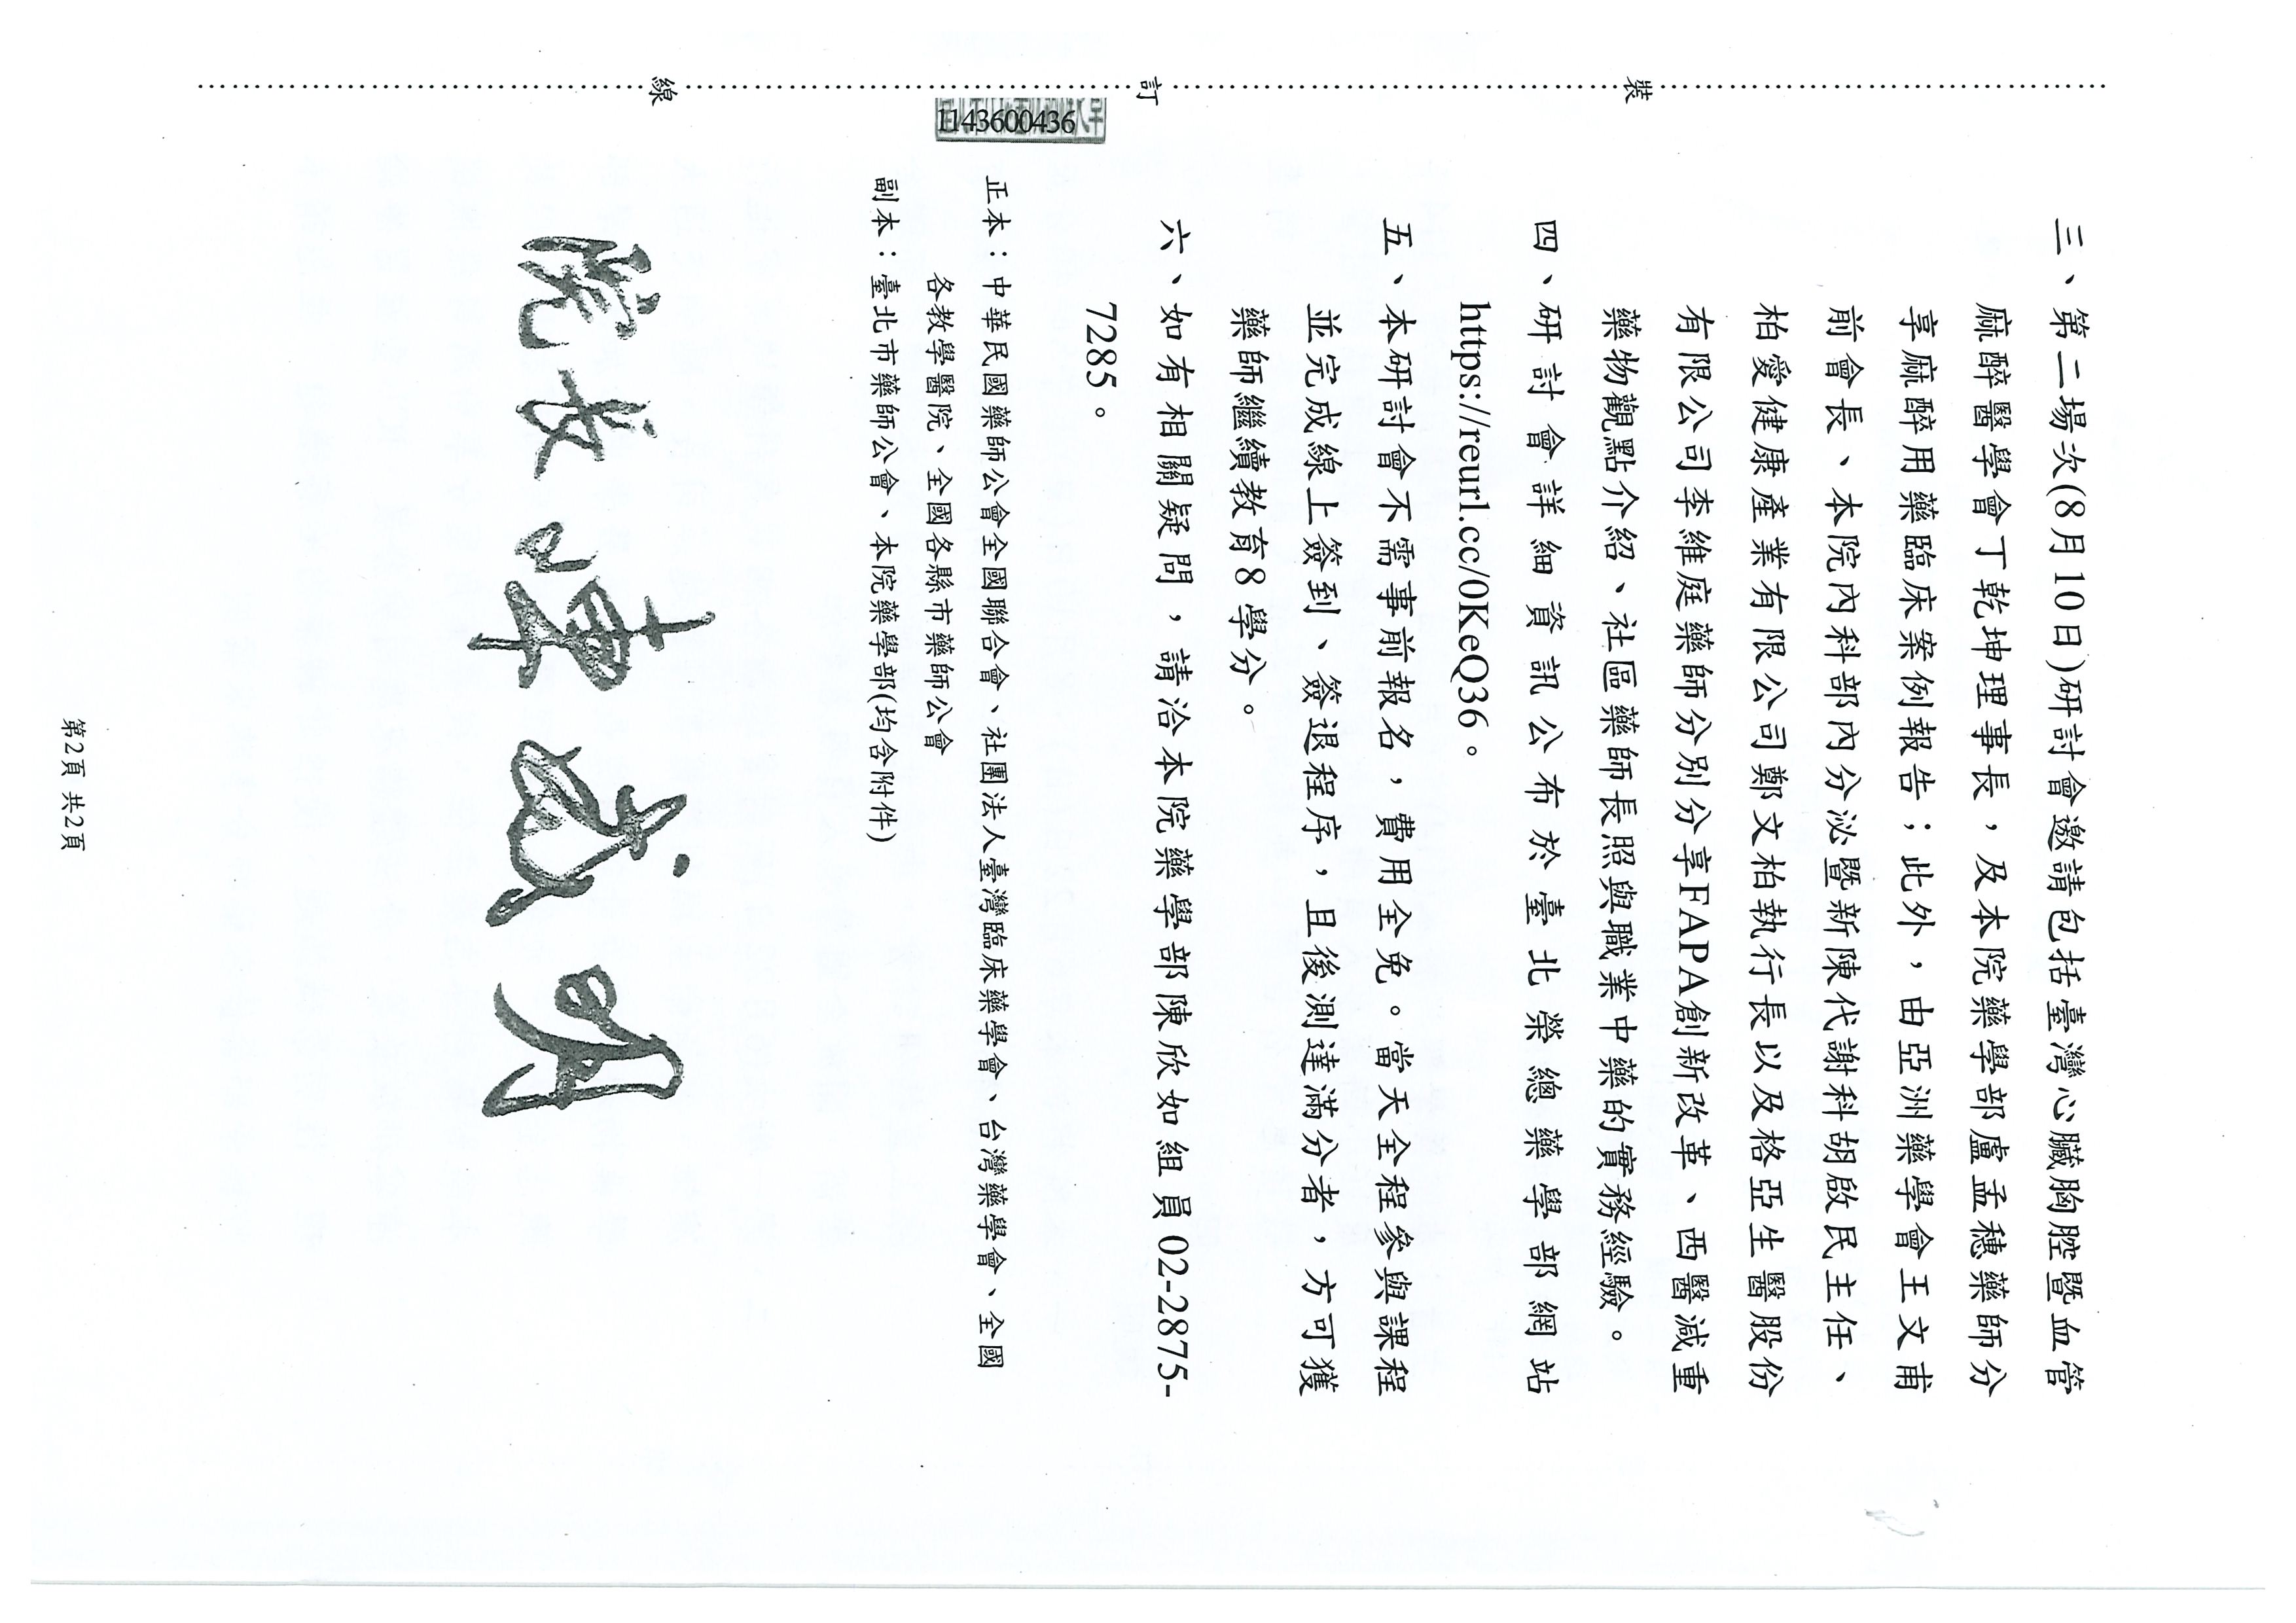 三、第二場次(8月10日)研討會邀請包括臺灣心臟胸腔暨血管
麻醉醫學會丁乾坤理事長，及本院藥學部盧孟穗藥師分
享麻醉用藥臨床案例報告；此外，由亞洲藥學會王文甫
前會長、本院內科部內分泌暨新陳代謝科胡啟民主任、
柏愛健康產業有限公司鄭文柏執行長以及格亞生醫股份
有限公司李維庭藥師分別分享FAPA創新改革、西醫減重
藥物觀點介紹、社區藥師長照與職業中藥的實務經驗。
四、研討會詳細資訊公布於臺北榮總藥學部網站
https://reurl.cc/0KeQ36。
五、本研討會不需事前報名，費用全免。當天全程參與課程
並完成線上簽到、簽退程序，且後測達滿分者，方可獲
藥師繼續教育8學分。
六、如有相關疑問，請洽本院藥學部陳欣如組員02-2875-
7285。
正本：中華民國藥師公會全國聯合會、社團法人臺灣臨床藥學會、台灣藥學會、全國
各教學醫院、全國各縣市藥師公會
副本：臺北市藥師公會、本院藥學部(均含附件)
院長陳威明
裝
訂
線
1143600436
第2頁 共2頁